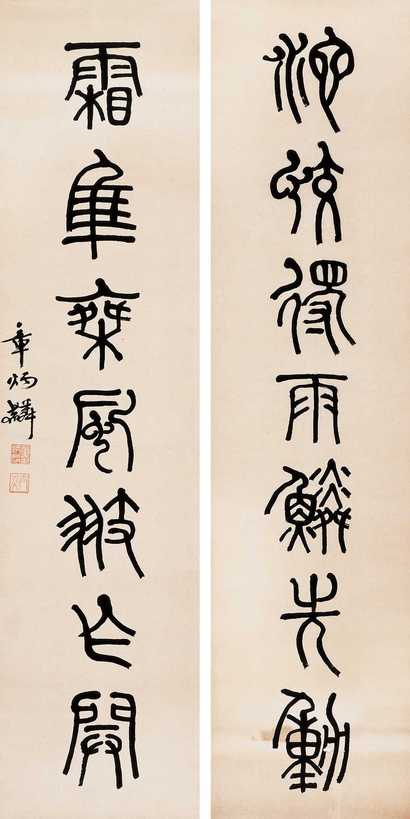 池蛟得雨鱗先動
霜隼乘風翅乍開
章炳麟